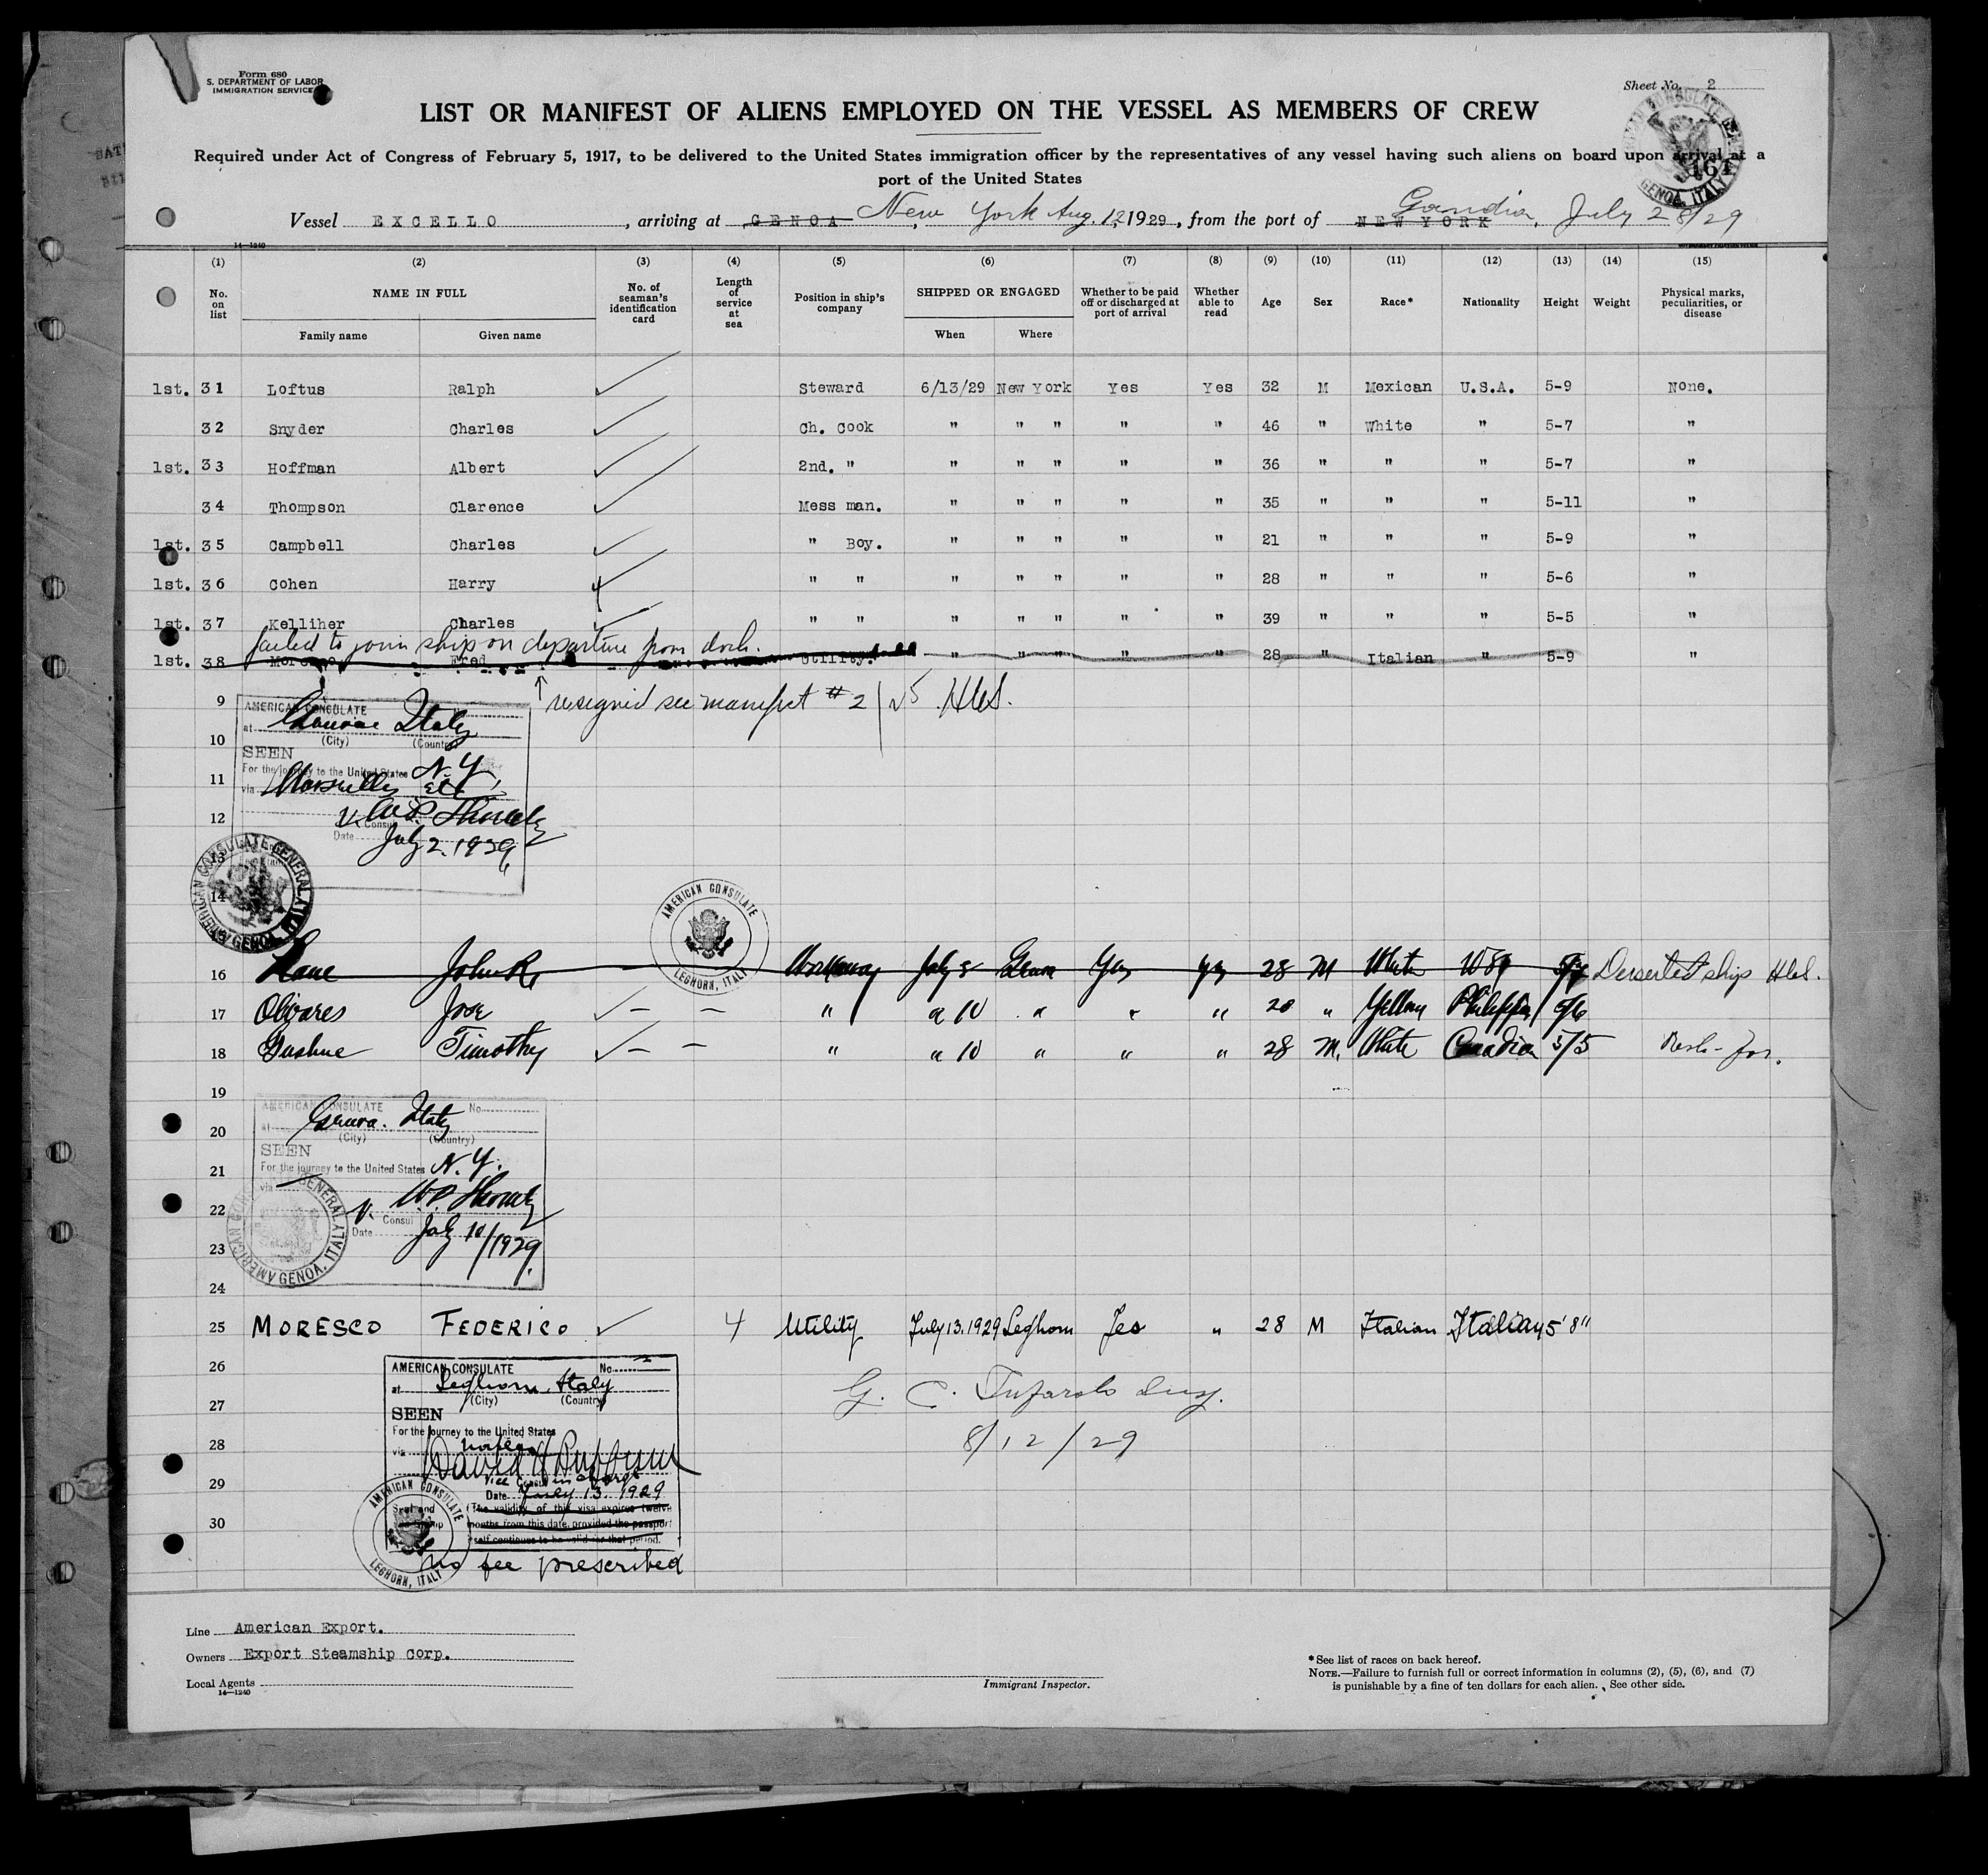 Form 680
S. DEPARTMENT OF LABOR
IMMIGRATION SERVICE
Sheet No. 2
LIST OR MANIFEST OF ALIENS EMPLOYED ON THE VESSEL AS MEMBERS OF CREW
Required under Act of Congress of February 5, 1917, to be delivered to the United States immigration officer by the representatives of any vessel having such aliens on board upon arrival at a
port of the United States
161
Vessel EXCELLO, arriving at GENOA New York Aug. 12, 1929, from the port of NEW YORK Gandia, July 28/29
14—1240
(1) (2) (3) (4) (5) (6) (7) (8) (9) (10) (11) (12) (13) (14) (15)
No. on list NAME IN FULL No. of seaman's identification card Length of service at sea Position in ship's company SHIPPED OR ENGAGED Whether to be paid off or discharged at port of arrival Whether able to read Age Sex Race* Nationality Height Weight Physical marks, peculiarities, or disease
Family name Given name When Where
1st. 31 Loftus Ralph Steward 6/13/29 New York Yes Yes 32 M Mexican U.S.A. 5-9 None.
32 Snyder Charles Ch. Cook " " " " " 46 " White " 5-7 "
1st. 33 Hoffman Albert 2nd. " " " " " " 36 " " " 5-7 "
34 Thompson Clarence Mess man. " " " " " 35 " " " 5-11 "
1st. 35 Campbell Charles " Boy. " " " " " 21 " " " 5-9 "
1st. 36 Cohen Harry " " " " " " " 28 " " " 5-6 "
1st. 37 Kelliher Charles " " " " " " " 39 " " " 5-5 "
failed to join ship on departure from dock.
1st. 38 Fred Utility. " " " " " 28 " Italian " 5-9 "
resigned see manifest # 2/25 HLS.
9
10
11
12
14
AMERICAN CONSULATE
at Genoa Italy
(City) (Country)
SEEN
For the journey to the United States N.Y.
via Marseilles etc
V. Consul
Date July 2, 1929
AMERICAN CONSULATE GENERAL GENOA, ITALY
AMERICAN CONSULATE LEGHORN, ITALY
16 Lane John R. Workaway July 8 Genoa Yes yes 28 M White Deserted ship HLS.
17 Olivares Jose — " " 10 " " " 28 " Yellow Philippin 5/6
18 Timothy — — " " 10 " " " 28 M. White Canadian 5/5
19
20
21
22
23
24
AMERICAN CONSULATE No.
at Genoa. Italy
(City) (Country)
SEEN
For the journey to the United States N.Y.
via
V. Consul
Date July 10/1929.
AMERICAN CONSULATE GENERAL GENOA, ITALY
25 MORESCO FEDERICO 4 Utility July 13, 1929 Leghorn Yes " 28 M Italian Italian 5'8"
26
27
28
29
30
AMERICAN CONSULATE No.
at Leghorn, Italy
(City) (Country)
SEEN
For the journey to the United States
via
Vice Consul in charge
Date July 13. 1929
(The validity of this visa expires twelve
months from this date, provided the passport
itself continues to be valid for that period.
No fee prescribed
AMERICAN CONSULATE LEGHORN, ITALY
8/12/29
Line American Export.
Owners Export Steamship Corp.
Local Agents
14—1240
Immigrant Inspector.
*See list of races on back hereof.
NOTE.—Failure to furnish full or correct information in columns (2), (5), (6), and (7)
is punishable by a fine of ten dollars for each alien. See other side.